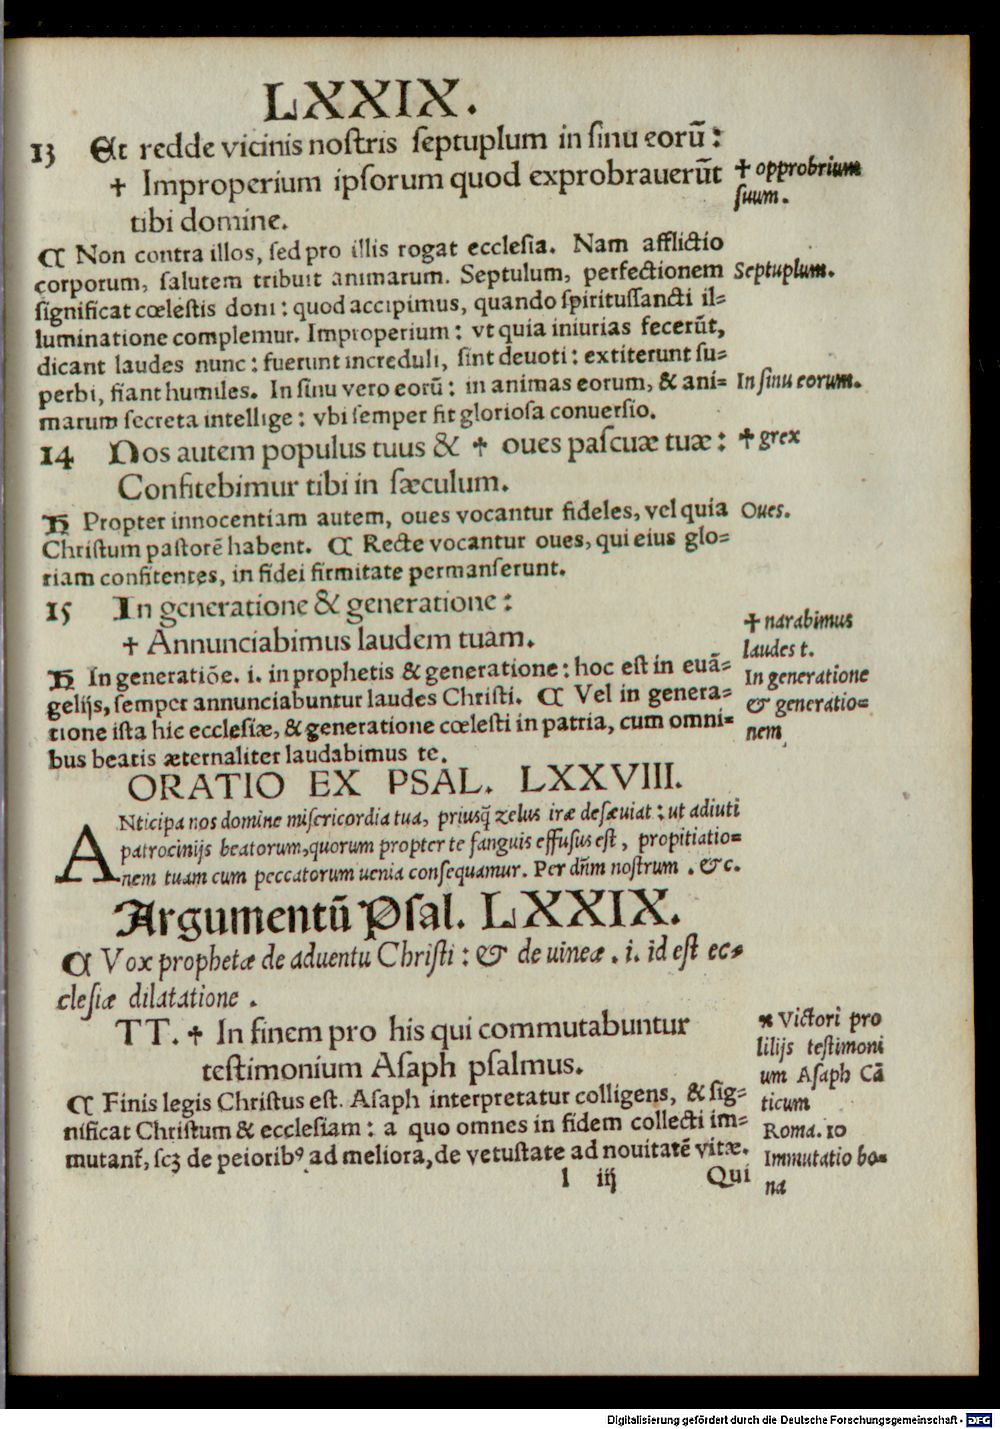 LXXIX.
13 Et redde vicinis nostris septuplum in sinu eorū:
✝ Improperium ipsorum quod exprobrauerūt
tibi domine.
✝ opprobrium
suum.
¶ Non contra illos, sed pro illis rogat ecclesia. Nam afflictio
corporum, salutem tribuit animarum. Septulum, perfectionem
Septuplum.
significat cœlestis doni: quod accipimus, quando spiritussancti il=
luminatione complemur. Improperium: vt quia iniurias fecerūt,
dicant laudes nunc: fuerunt increduli, sint deuoti: extiterunt su=
perbi, fiant humiles. In sinu vero eorū: in animas eorum, & ani=
In sinu eorum.
marum secreta intellige: vbi semper fit gloriosa conuersio.
14 Nos autem populus tuus & ✝ oues pascuæ tuæ:
✝ grex
Confitebimur tibi in sæculum.
H Propter innocentiam autem, oues vocantur fideles, vel quia
Oues.
Christum pastorē habent. ¶ Recte vocantur oues, qui eius glo=
riam confitentes, in fidei firmitate permanserunt.
15 In generatione & generatione:
✝ Annunciabimus laudem tuam.
✝ narabimus
laudes t.
H In generatiōe. i. in prophetis & generatione: hoc est in euā=
In generatione
gelijs, semper annunciabuntur laudes Christi. ¶ Vel in genera=
& generatio=
tione ista hic ecclesiæ, & generatione cœlesti in patria, cum omni=
nem
bus beatis æternaliter laudabimus te.
ORATIO EX PSAL. LXXVIII.
ANticipa nos domine misericordia tua, priusq̃ zelus iræ desæuiat: ut adiuti
patrocinijs beatorum, quorum propter te sanguis effusus est, propitiatio=
nem tuam cum peccatorum uenia consequamur. Per dñm nostrum . &c.
Argumentū Psal. LXXIX.
¶ Vox prophetæ de aduentu Christi: & de uineæ . i. id est ec=
clesiæ dilatatione .
TT. ✝ In finem pro his qui commutabuntur
testimonium Asaph psalmus.
✠ Victori pro
lilijs testimoni
um Asaph Cā
ticum
¶ Finis legis Christus est. Asaph interpretatur colligens, & sig=
nificat Christum & ecclesiam: a quo omnes in fidem collecti im=
Roma. 10
mutant̃, scꝫ de peioribꝰ ad meliora, de vetustate ad nouitatē vitæ.
Immutatio bo=
na
l iij Qui
Digitalisierung gefördert durch die Deutsche Forschungsgemeinschaft - DFG